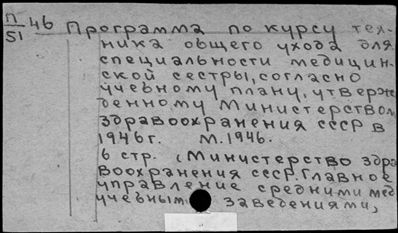 П/51 46 Программа по курсу тех-
ника общего ухода для
специальности медицин-
ской сестры, согласно
учебному плану, утверж-
денному Министерством
здравоохранения СССР в
1946 г. М. 1946.
6 стр. (Министерство здра-
воохранения СССР. Главное
управление средними мед.
учебным заведениями,